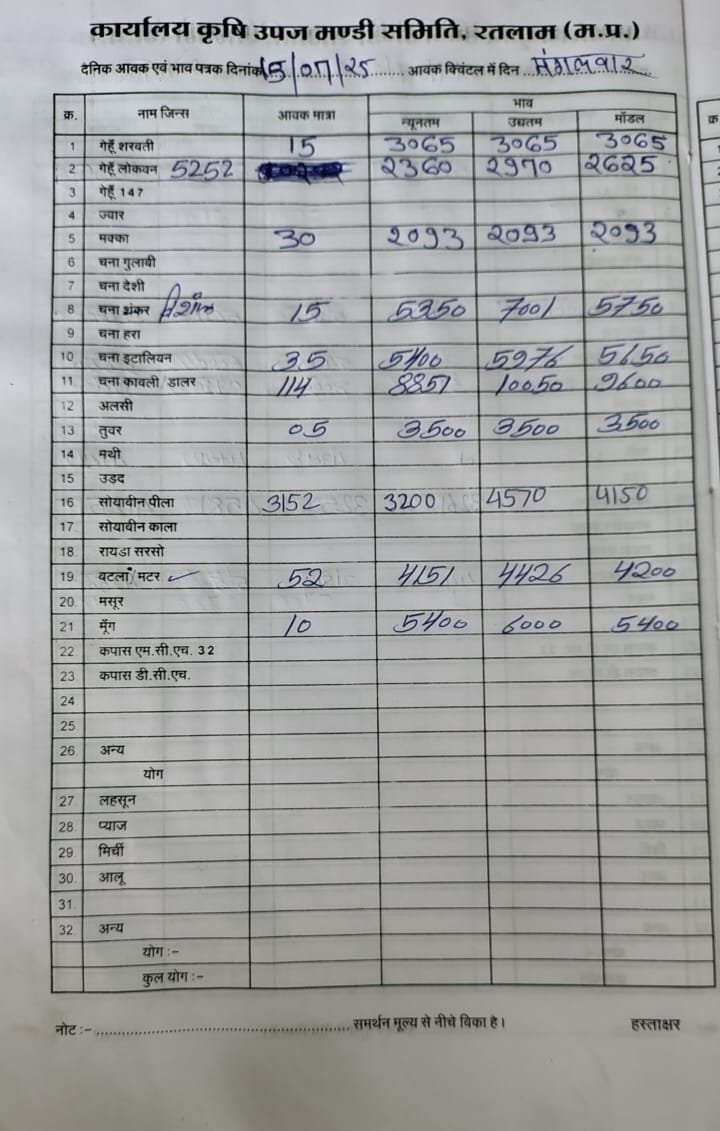 कार्यालय कृषि उपज मण्डी समिति, रतलाम (म.प्र.)
दैनिक आवक एवं भाव पत्रक दिनांक 15/07/25 आवक क्विंटल में दिन मंगलवार
क्र. नाम जिन्स आवक मात्रा भाव
न्यूनतम उच्चतम मॉडल
1 गेहूँ शरबती 15 3065 3065 3065
2 गेहूँ लोकवन 5252 2360 2970 2625
3 गेहूँ 147
4 ज्वार
5 मक्का 30 2093 2093 2093
6 चना गुलाबी
7 चना देशी
8 चना शंकर विशाल 15 5350 7001 5750
9 चना हरा
10 चना इटालियन 35 5400 5976 5650
11 चना कावली/डालर 114 8851 10050 9600
12 अलसी
13 तुवर 05 3500 3500 3500
14 मैथी
15 उडद
16 सोयाबीन पीला 3152 3200 4570 4150
17. सोयाबीन काला
18. रायडा सरसो
19 बटला/मटर 52 4151 4426 4200
20. मसूर
21 मूँग 10 5400 6000 5400
22 कपास एम.सी.एच. 32
23. कपास डी.सी.एच.
24
25
26. अन्य
योग
27 लहसून
28 प्याज
29 मिर्ची
30. आलू
31.
32. अन्य
योग :-
कुल योग :-
नोट :- समर्थन मूल्य से नीचे बिका है। हस्ताक्षर
क्र